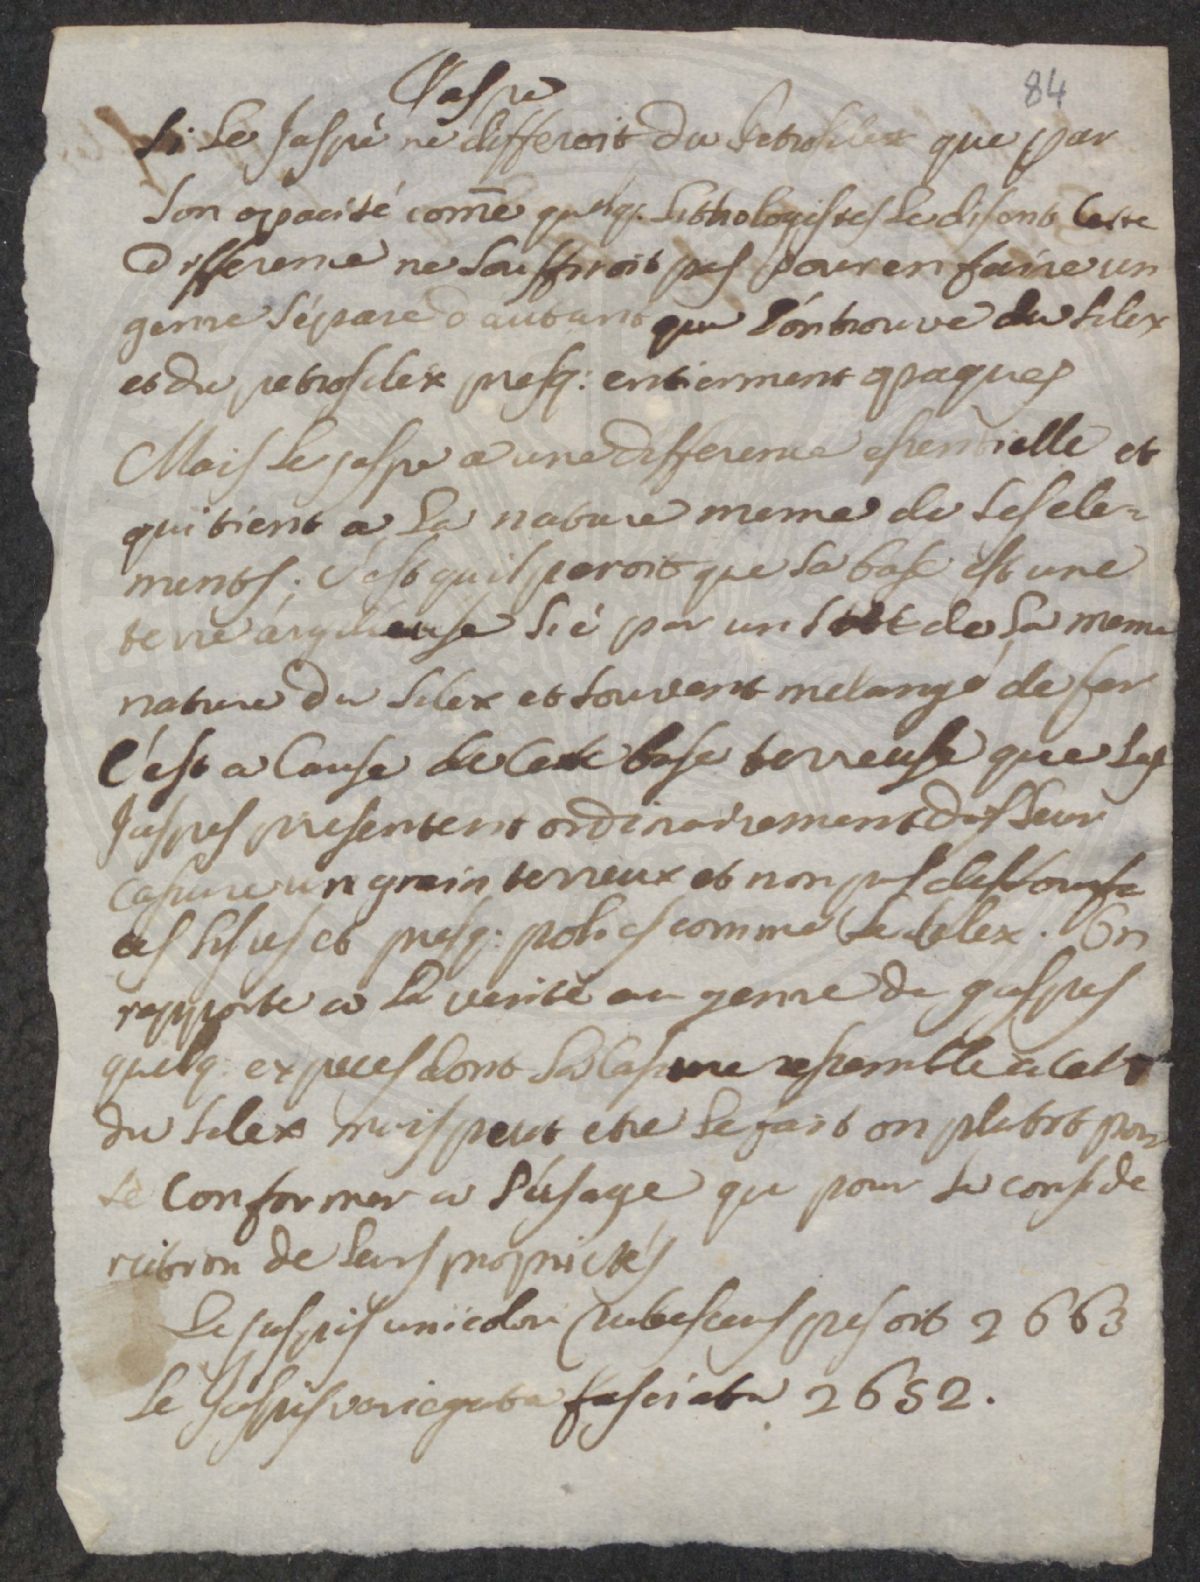 Jaspe
84
Si le Jaspe ne differoit du Petrosilex que par
son opacité come quelq. Lithologistes le disent Cette
Difference ne souffiroit pas pour en faire un
genre séparé d'autant que l'ón trouve du silex
et du petrosilex presq: entierment opaques
Mais le jaspe a une difference essentielle et
qui tient a la nature meme de ses ele=
ments; c'est qu'il paroit que sa base est une
terre argilleuse lié par un de la meme
nature du silex et souvent melangé de fer
C'est a Cause de Cette base terreuse que les
Jaspes presentent ordinairement dans leur
Cassure un grain terreux et non pas des
lisses et presq: polies comme le silex. On
rapporte a la verité au genre de gaspes
quelq: expeces dont la Cassure ressemble a celle
du silex mais peut etre le fait on plutot pour
se Conformer a l'úsage que pour la conside
ration de leurs proprietés
Le jaspis unicolor rubescens pesoit 2663
Le Jaspis variegata fasciata 2652.